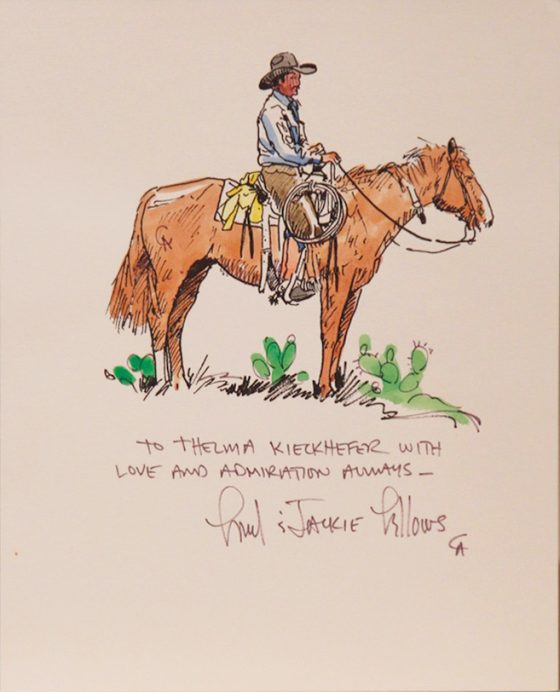 TO THELMA KIECKHEFER WITH
LOVE AND ADMIRATION ALWAYS—
Fred & JACKIE Fellows
CA